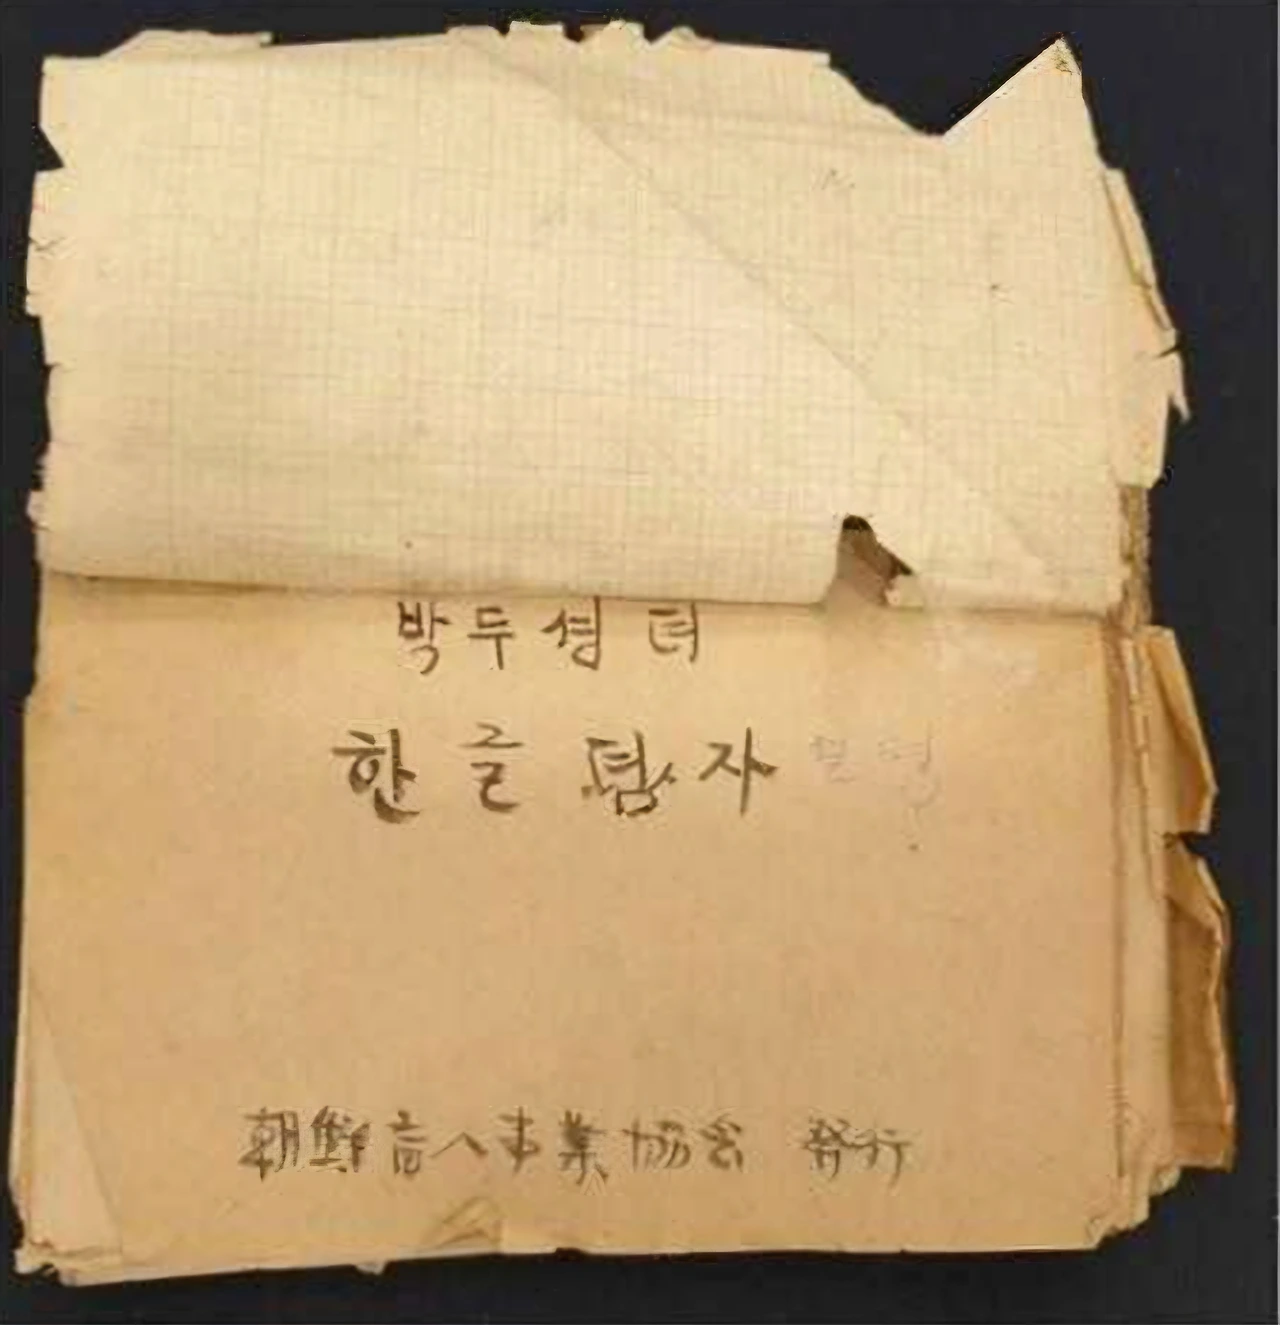 박두셩 뎌
한글 뎜자
朝鮮盲人事業協会 發行